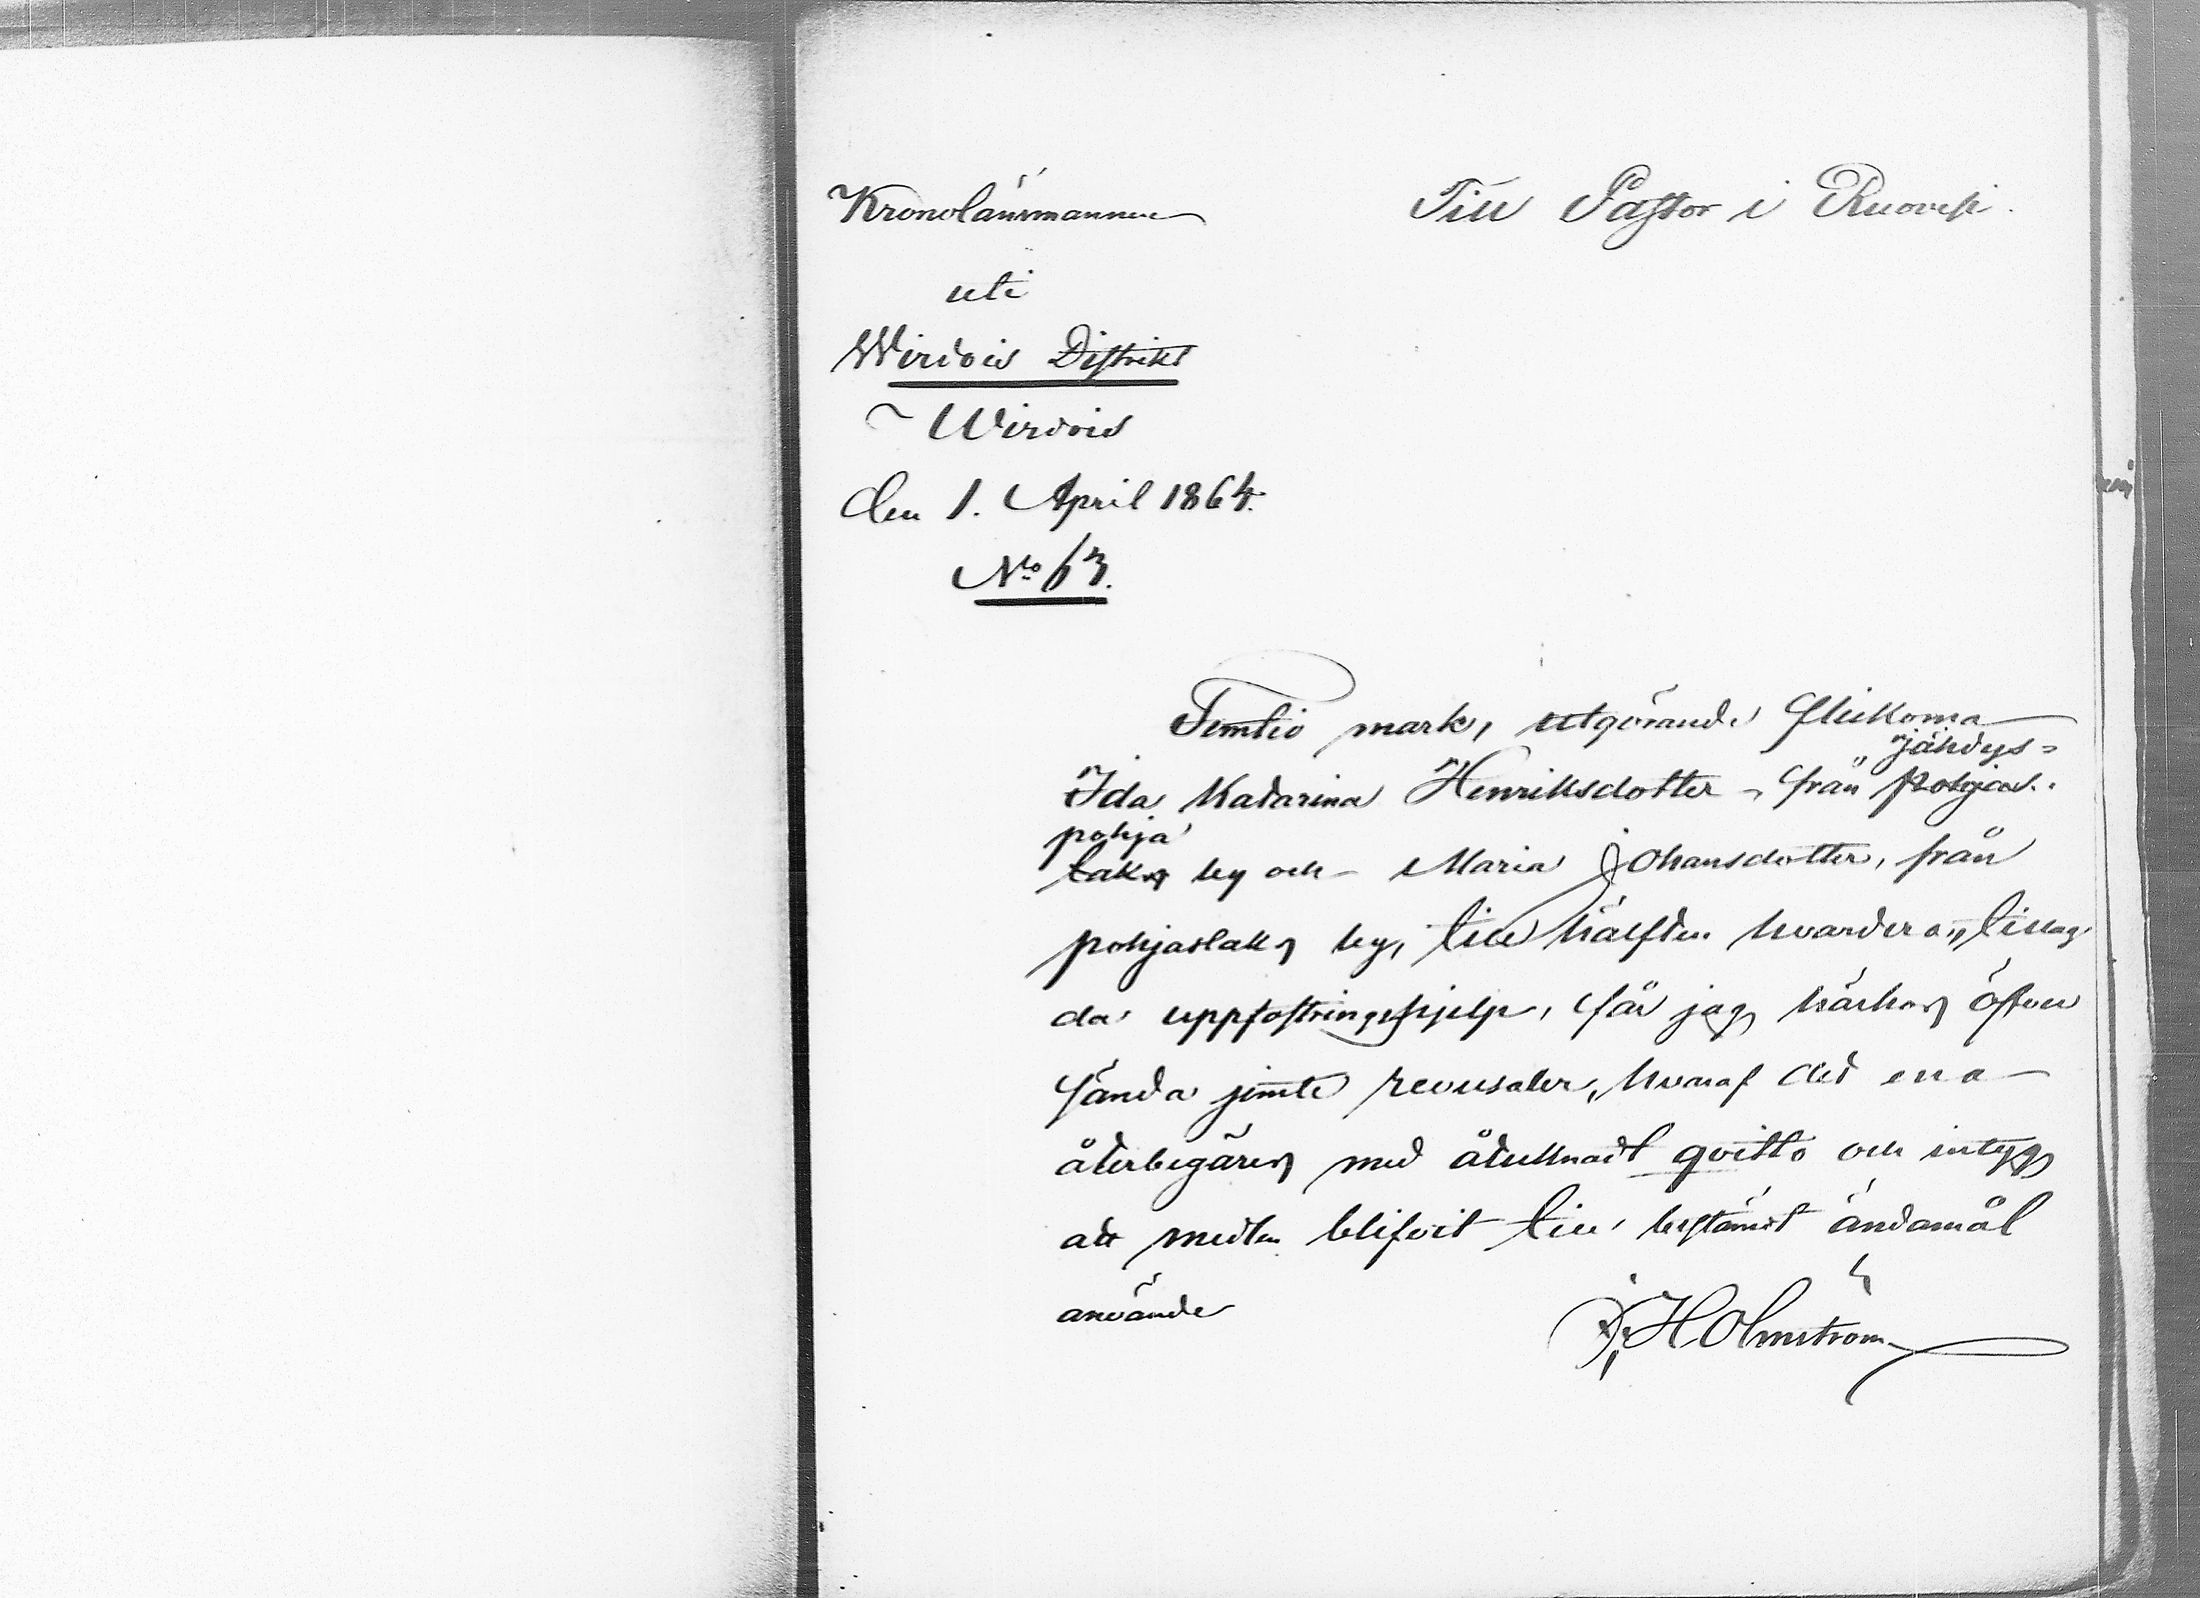 Kronolänsmannen
uti
Wirdois Distrikt
Wirdois
den 1. April 1864.
No 63.
Till Pastor i Ruovesi.
Femtio mark, utgörande flickorna
jähdys=
Ida Katarina Henriksdotter från Pohjas..
pohja
laks by och Maria Johansdotter, från
pohjaslaks by, till hälften hvardera, tillag
da uppfostringshjelp, får jag härhos öfver
sända jemte reversaler, hvaraf det ena
återbegäres med åtecknadt qvitto och intyg
att medlen blifvit till bestämdt ändamål
använde
Holmström